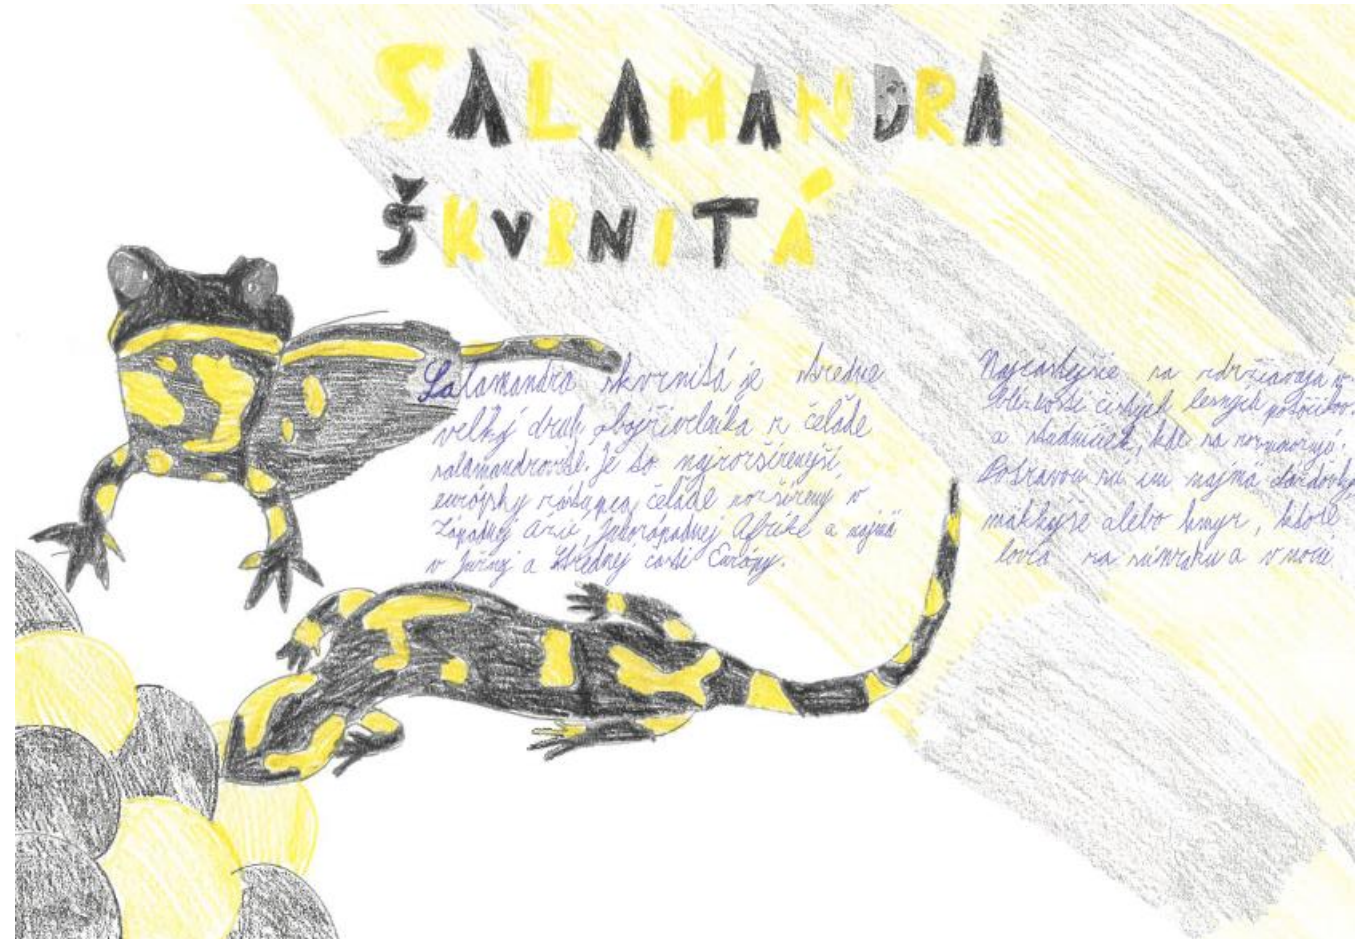 SALAMANDRA
ŠKVRNITÁ
Salamandra škvrnitá je stredne
veľký druh obojživelníka z čeľade
salamandrovité. Je to najrozšírenejší
európsky zástupca čeľade rozšírený v
Západnej Ázii, Juhozápadnej Afrike a najmä
v Južnej a Strednej časti Európy.
Najčastejšie sa zdržiavajú v
blízkosti čistých lesných potôčikov
a studničiek, kde sa rozmnožujú.
Potravou sú im najmä dážďovky
mäkkýše alebo hmyz, ktoré
lovia za súmraku a v noci